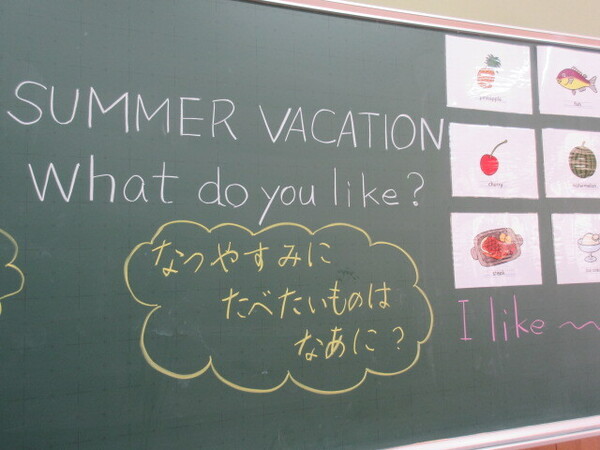 SUMMER VACATION
What do you like?
なつやすみに
たべたいものは
なあに?
pineapple
fish
cherry
watermelon
steak
I like ～